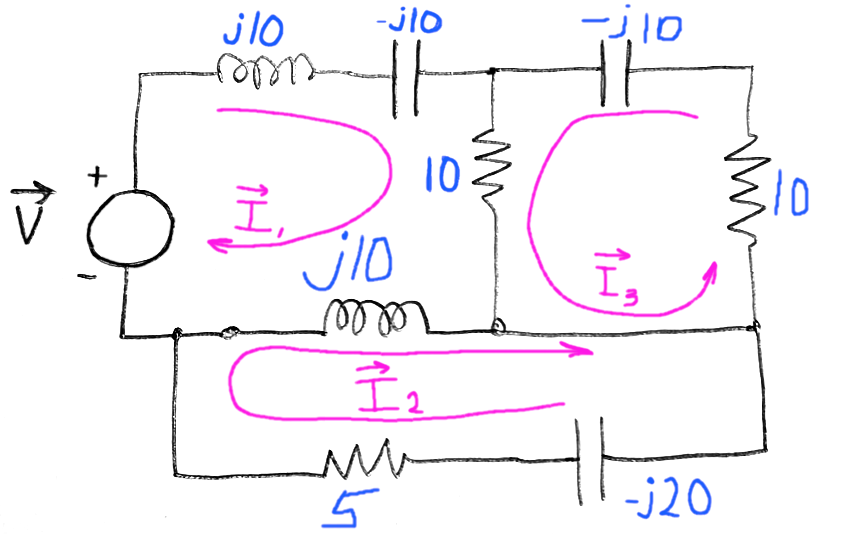 j10
-j10
-j10
+
V
-
I1
10
10
j10
I3
I2
5
-j20